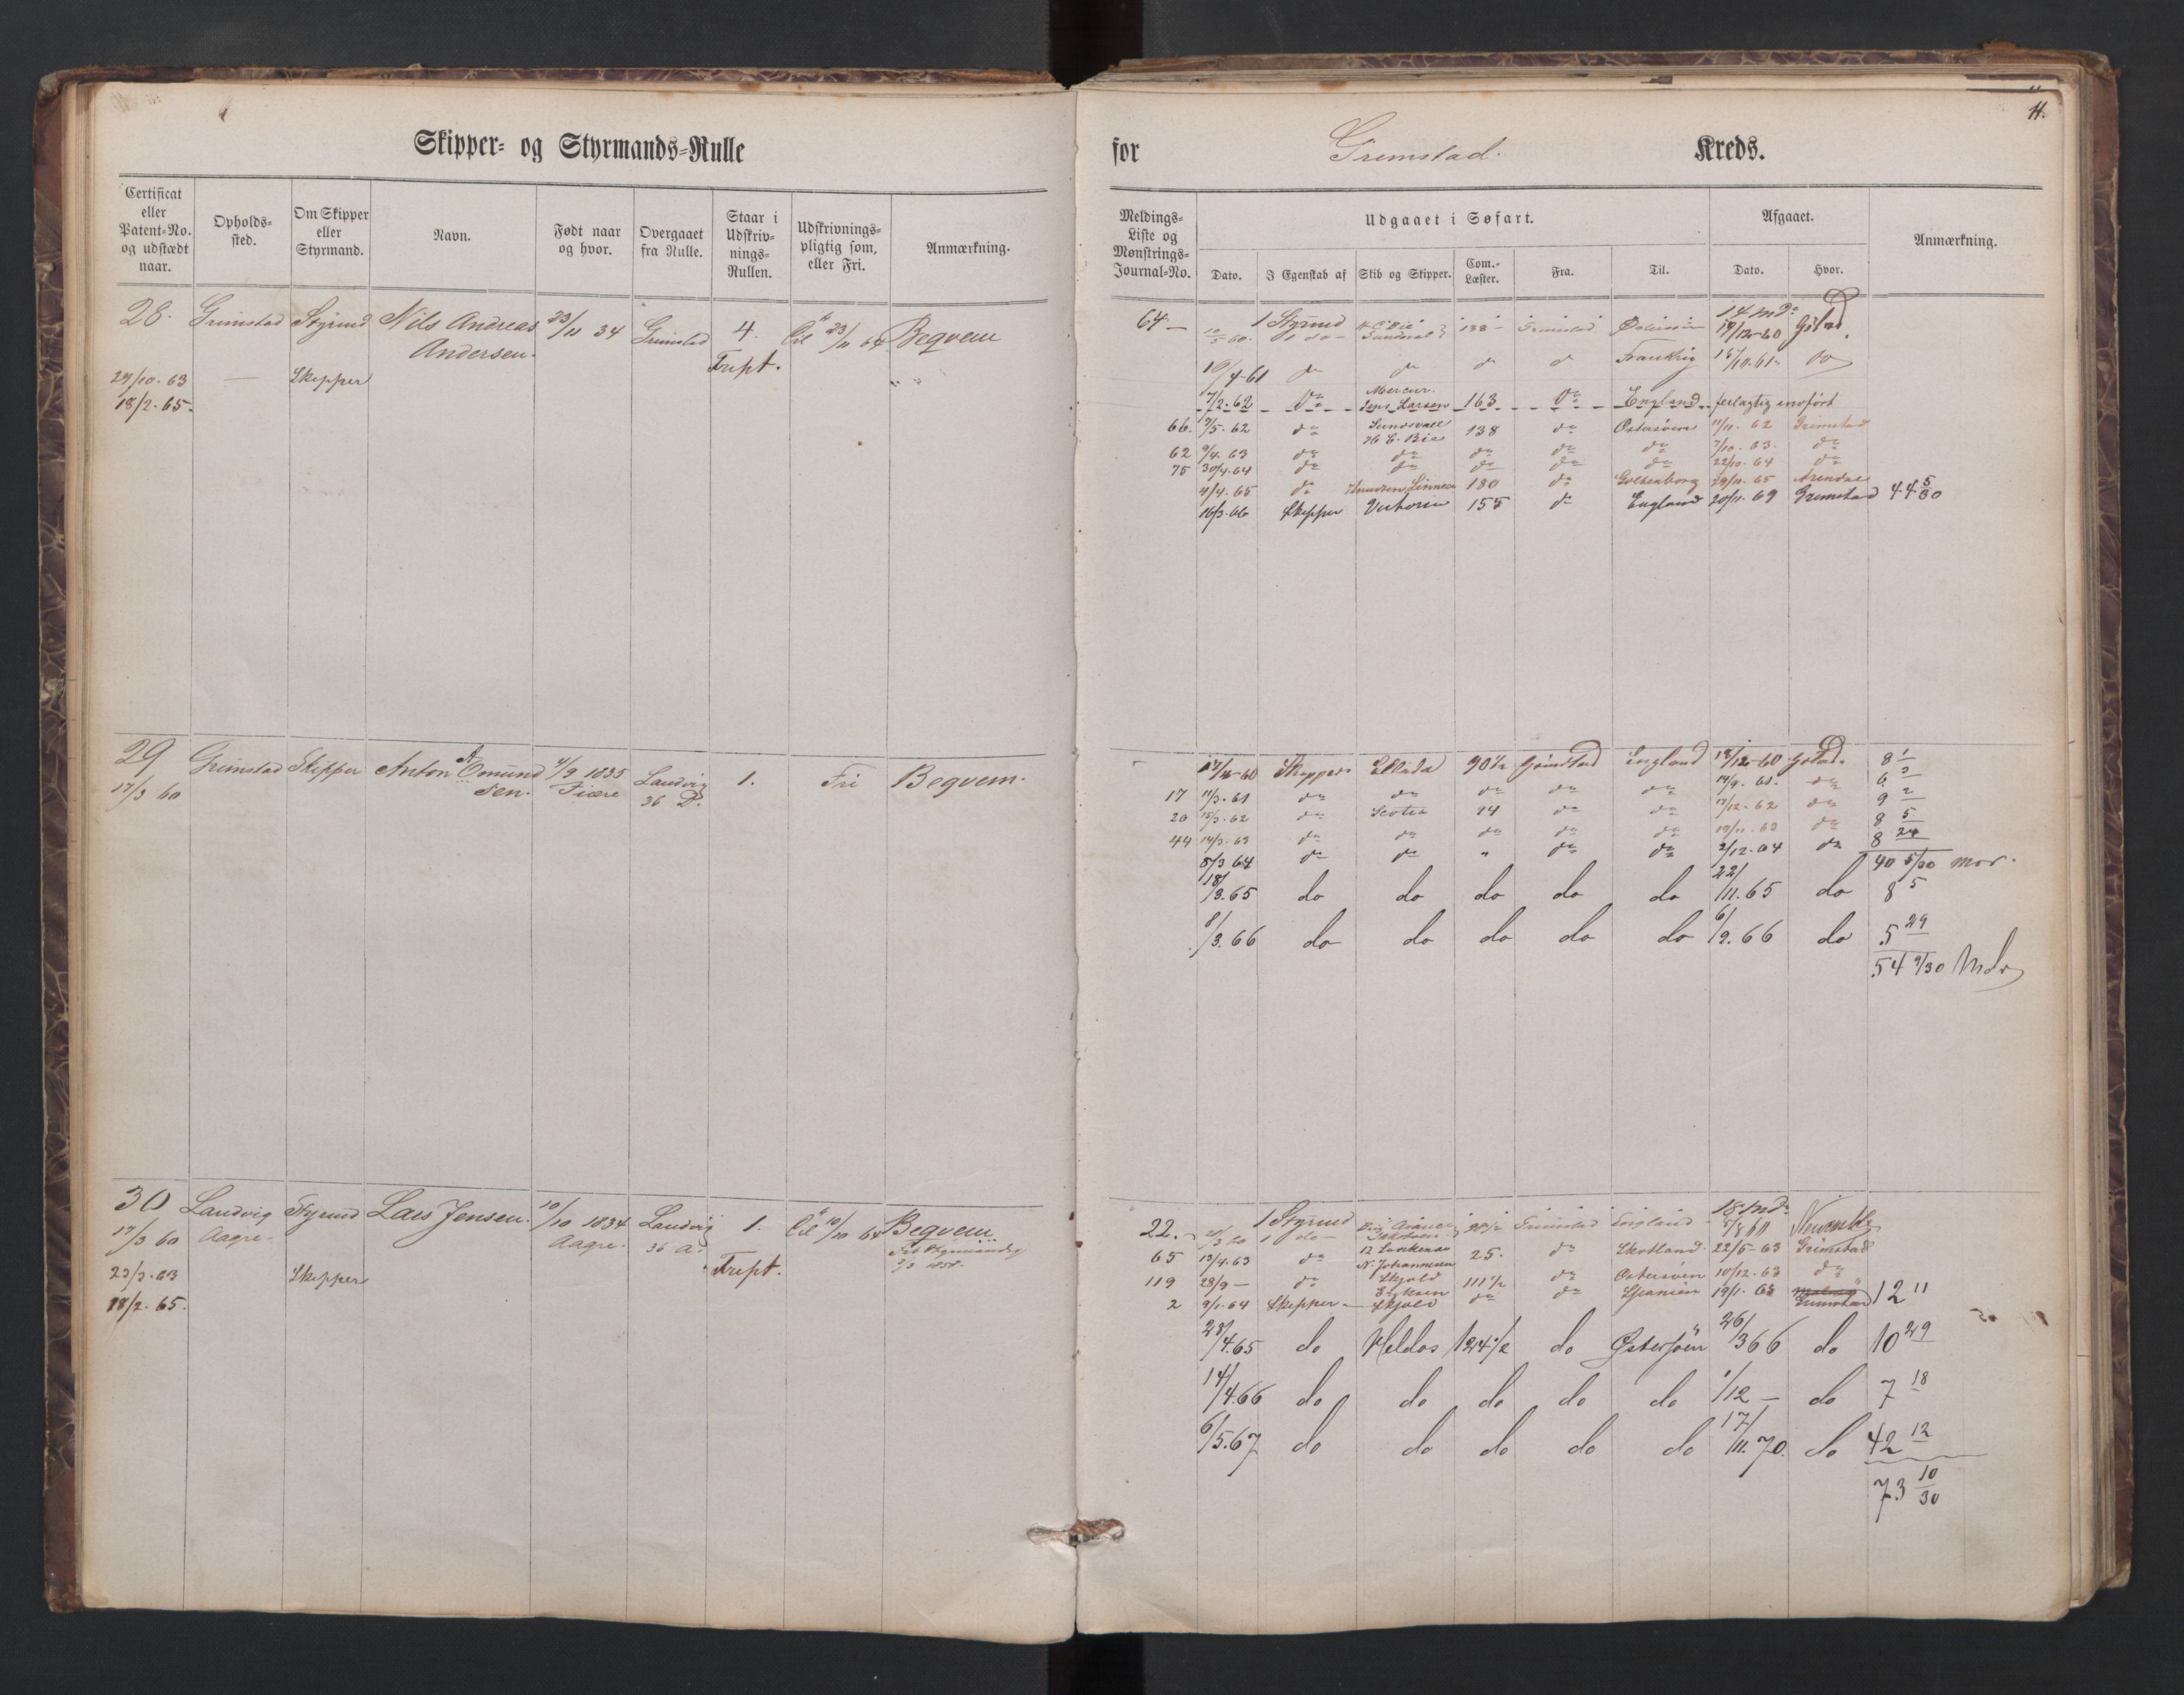 Skipper- og Styrmands-Rulle
Certificat eller Patent-No. og udstædt naar.
Opholds-sted.
Om Skipper eller Styrmand.
Navn.
Født naar og hvor.
Overgaaet fra Rulle.
Staar i Udskriv-nings-Rullen.
Udskrivnings-pligtig som, eller Fri.
Anmærkning.
28. Grimstad Styrmd Nils Andreas 23/11 34 Grimstad 4. til 23/11 64 Beqvem
Andersen. Fript.
29/10. 63 — Skipper
18/2. 65.
29 Grimstad Skipper Anton A Omund 4/9 1835 Landvig 1. Fri Beqvem.
17/3 60 sen. Fiære 36 P.
30 Landvig Styrmd Lars Jensen. 10/10 1834 Landvig 1. til 10/10 64 Beqvem
17/3 60 Aagre. Aagre. 36 a. Fript.
23/3. 63 Skipper
18/2. 65.
11.
for Grimstad. Kreds.
Meldings-Liste og Mønstrings-Journal-No.
Udgaaet i Søfart.
Afgaaet.
Anmærkning.
Dato.
I Egenskab af
Skib og Skipper.
Com.-Læster.
Fra.
Til.
Dato.
Hvor.
14 Md.
64 — 10/5 60. 1 Styrmd 138 Grimstad 19/12-60 Gstad.
1 do
16/4-61 do do do do Frankrig 16/10.61 do
Mercur
7/2.62 do Jens Larsen 163 do England feilagtig indført
Sundsvall
66. 17/5. 62 do H C. Bie 138 do Østersøen 11/11. 62 Grimstad
62 9/4. 63 do do do do do 7/10. 63. do
75 30/4.64 do do do do do 22/10. 64 do
4/4. 65 do Knudsen Linnea 180 do Gothenborg 29/11. 65 Arendal
16/3.66 Skipper Victoria 155 do England 20/11. 69 Grimstad 44 5/30
17/4-60 Skipper Ellida 90½ Grimstad England 18/12-60 Gstad. 8 1
17 11/3.61 do do do do do 14/9. 61. do 6 3
20 15/3.62 do Scotia 94 do do 17/12. 62 do 9 2
44 14/3.63 do do do do do 19/11. 63 do 8 5
8/3 64 do do " do do 2/12.64 do 8 24
40 5/30 mdr.
18/3.65 do do do do do 22/11.65 do 8 5
8/3.66 do do do do do 6/9.66 do 5 29
54 9/30 Mdr
18 Md.
22. 1 Styrmd Grimstad England 5/8 61
1 do
65 13/4.63 do N. Johannesen 25. do Skotland 22/5-63 Grimstad
119 28/9 — do Skjold 111½ do Østersøen 10/12.63 do
Eriksen
2 9/1.64 Skipper Skjold do do Spanien 19/1. 65 Grimstad 12 11
28/4.65 do Heldos 124½ do Østersøen 26/3 66 do 10 29
14/4.66 do do do do do 1/12 — do 7 18
6/5.67 do do do do do 17/11.70. do 42 12
73 10/30